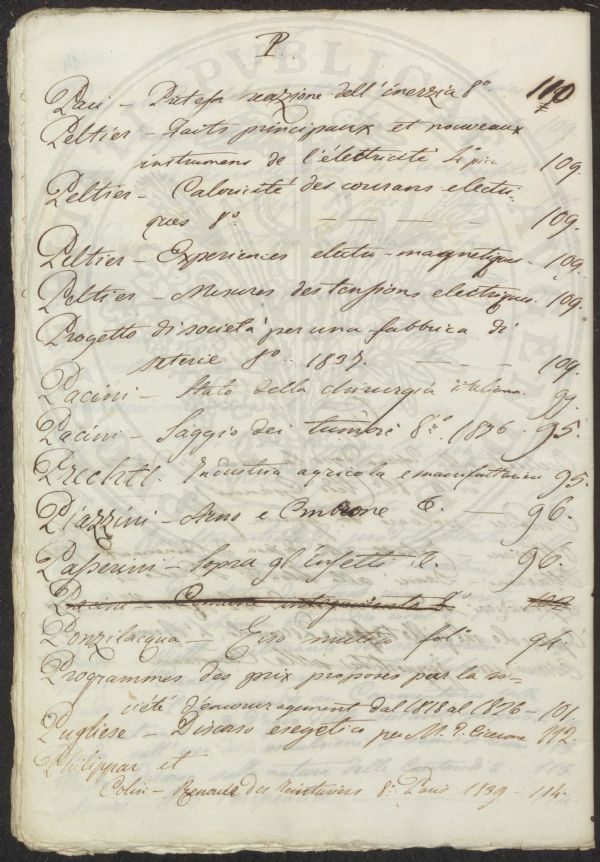 P.
Paci - reazione dell'inerzia 8.° 110
Peltier - Faits principaux et nouveaux
instrumens de l'électricité 109.
Peltier - Caloricité des courans electri-
ques 8.° - - - - 109.
Peltier - Experiences electro-magnetiques - 109.
Peltier - Mesures des tensions electriques. 109.
Progetto di società per una fabbrica di
seterie 8.° 1837. - - - 109.
Pacini - Stato della chirurgia italiana 99.
Pacini - Saggio dei tumori 8.° 1836. 95.
Prechtl. Industria agricola e manufatturiera 95.
Piazzini - Arno e Ombrone 8. - 96.
Passerini - Sopra gl'insetti 8. 96.
Pacini - 8.° 102
Ponzilacqua - Eco fol.° 94.
Programmes des prix proposés par la so-
cieté d'encouragement dal 1818 al 1836 - 101.
Pugliese - Discorso esegetico per M. T. Cicerone 112.
Philippar et
Colin - des 8.° Paris 1839 - 114.